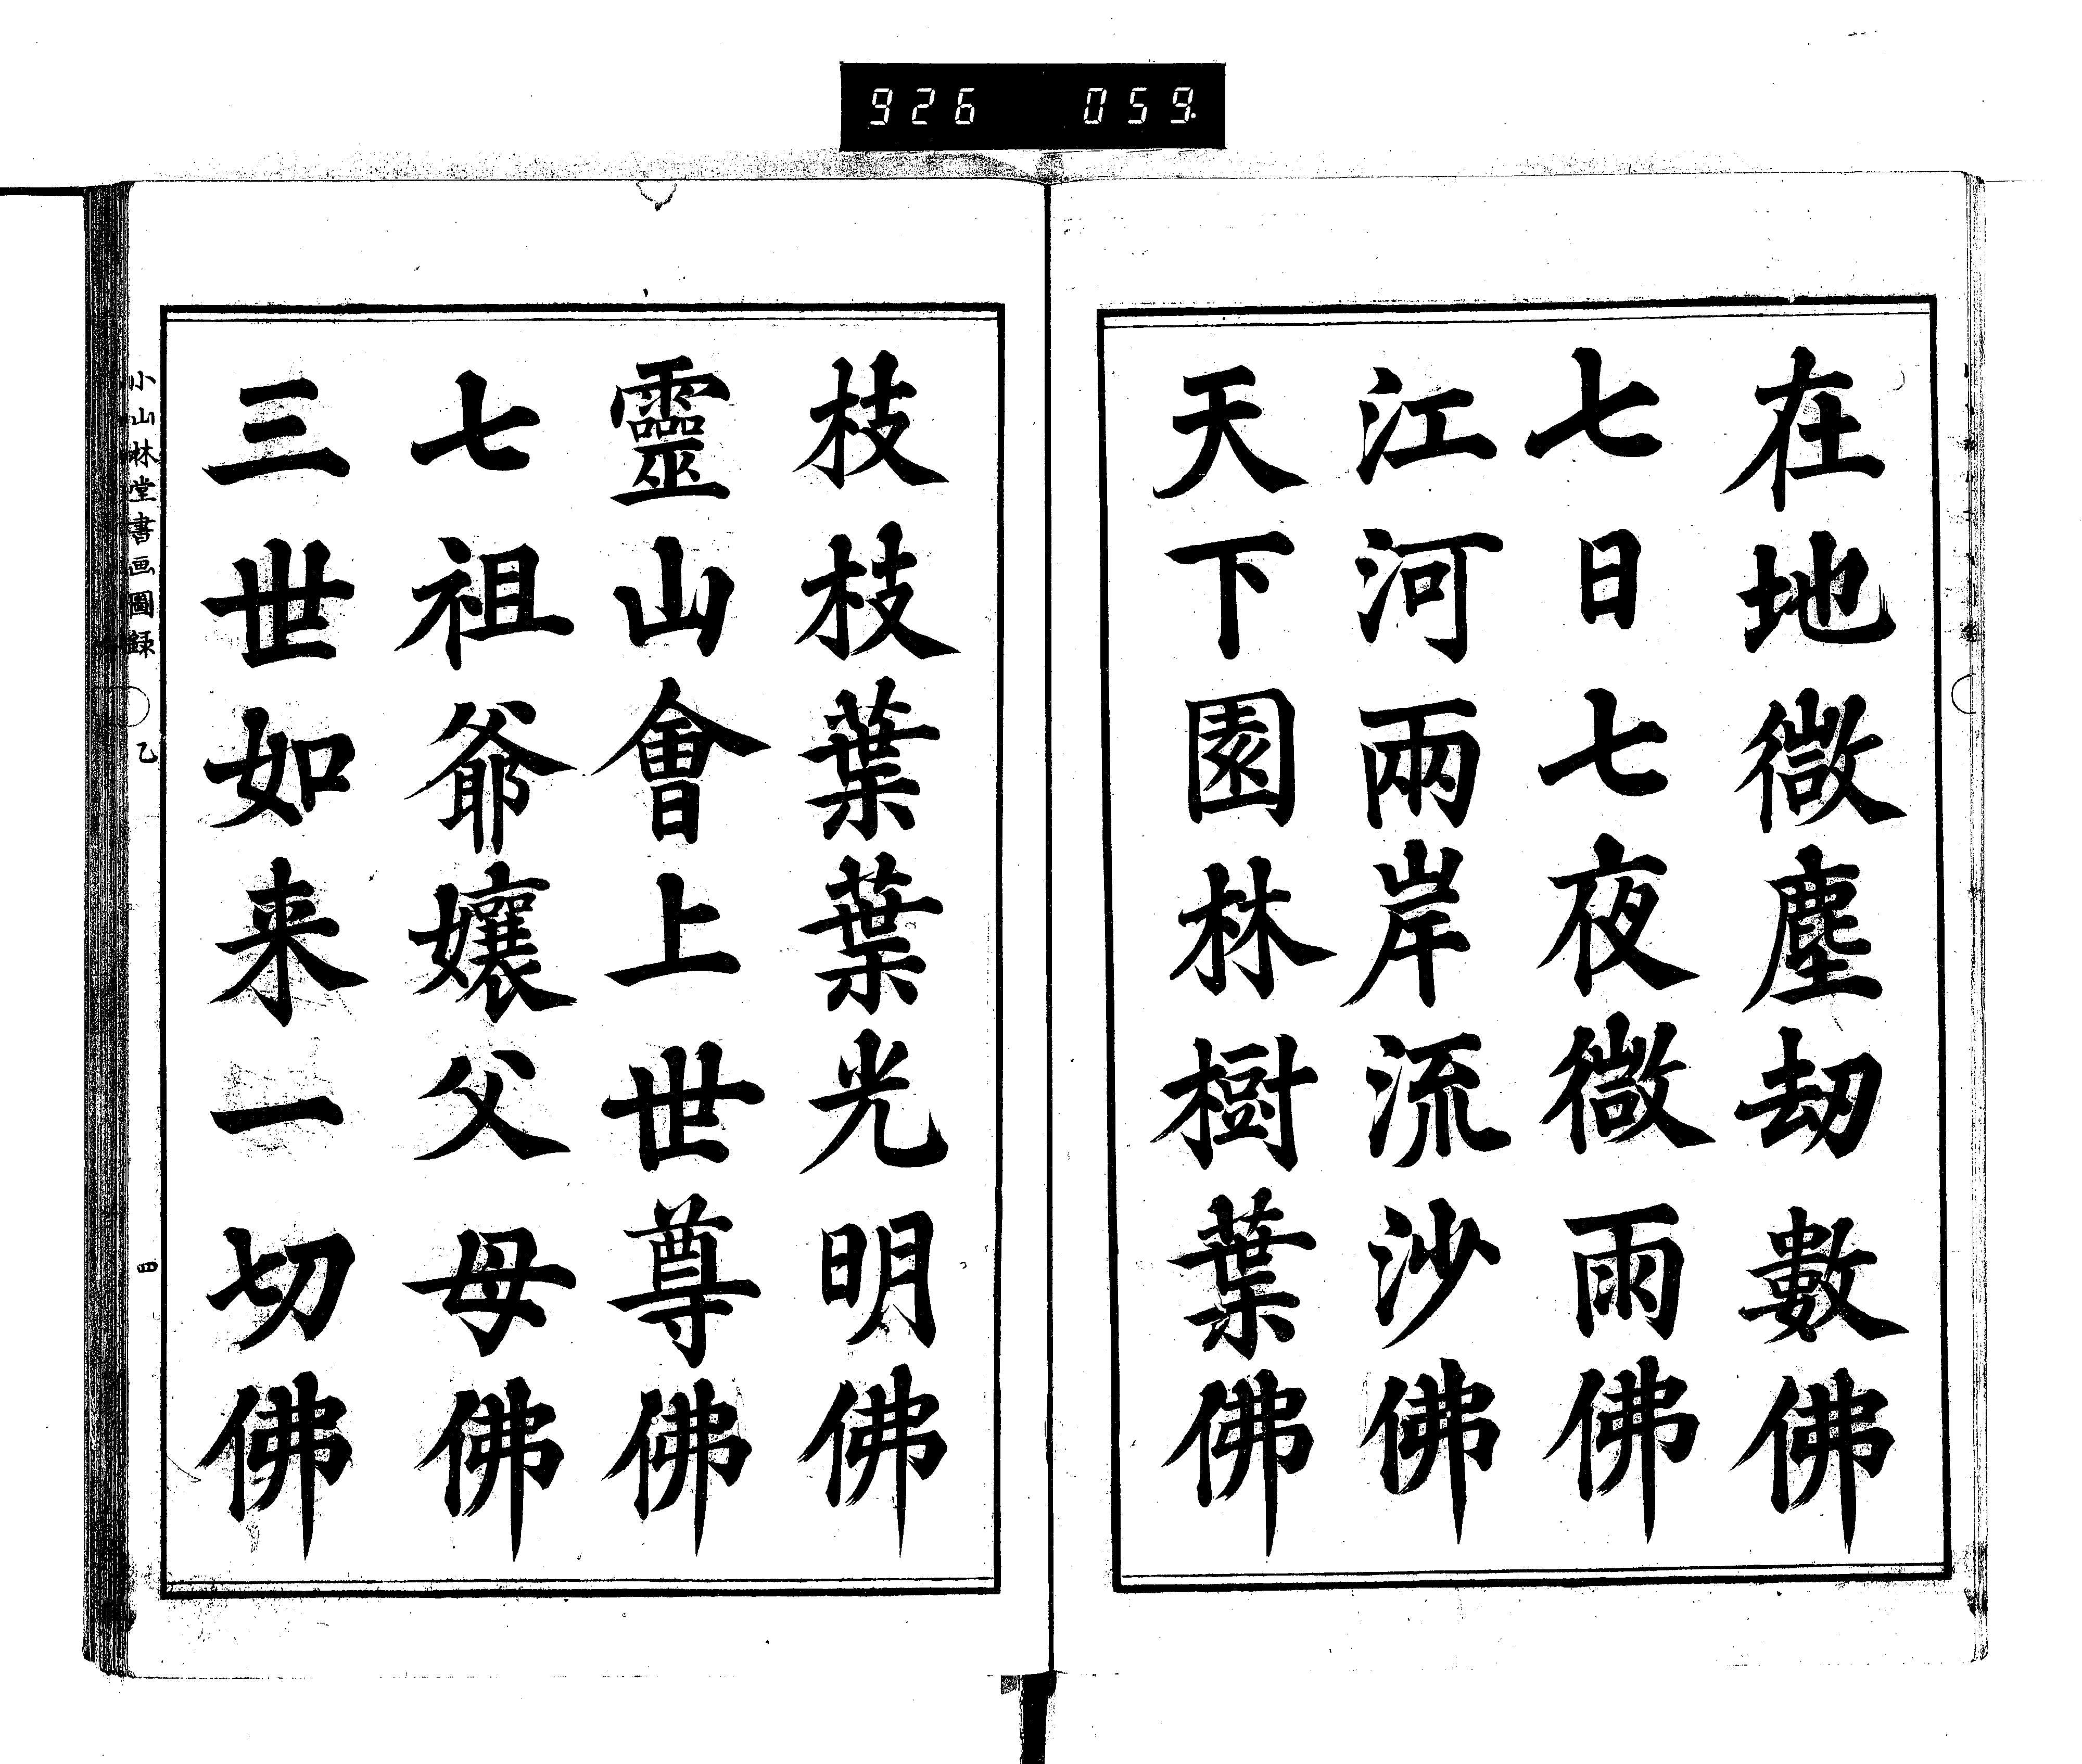 926 059.
在地微塵劫數佛
七日七夜微雨佛
江河兩岸流沙佛
天下園林樹葉佛
枝枝葉葉光明佛
靈山會上世尊佛
七祖爺孃父母佛
三世如来一切佛
小山林堂書画圖録 乙 四